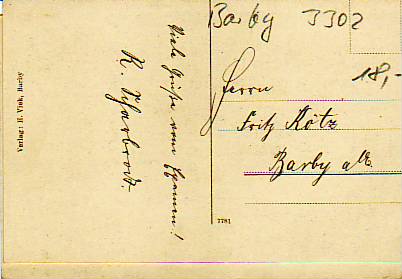 Barby 3302
18,-
Herrn
Fritz Kötz
Barby a/E.
Viele Grüße vom
K. Scharbrodt.
Verlag: H. Vink, Barby
7781